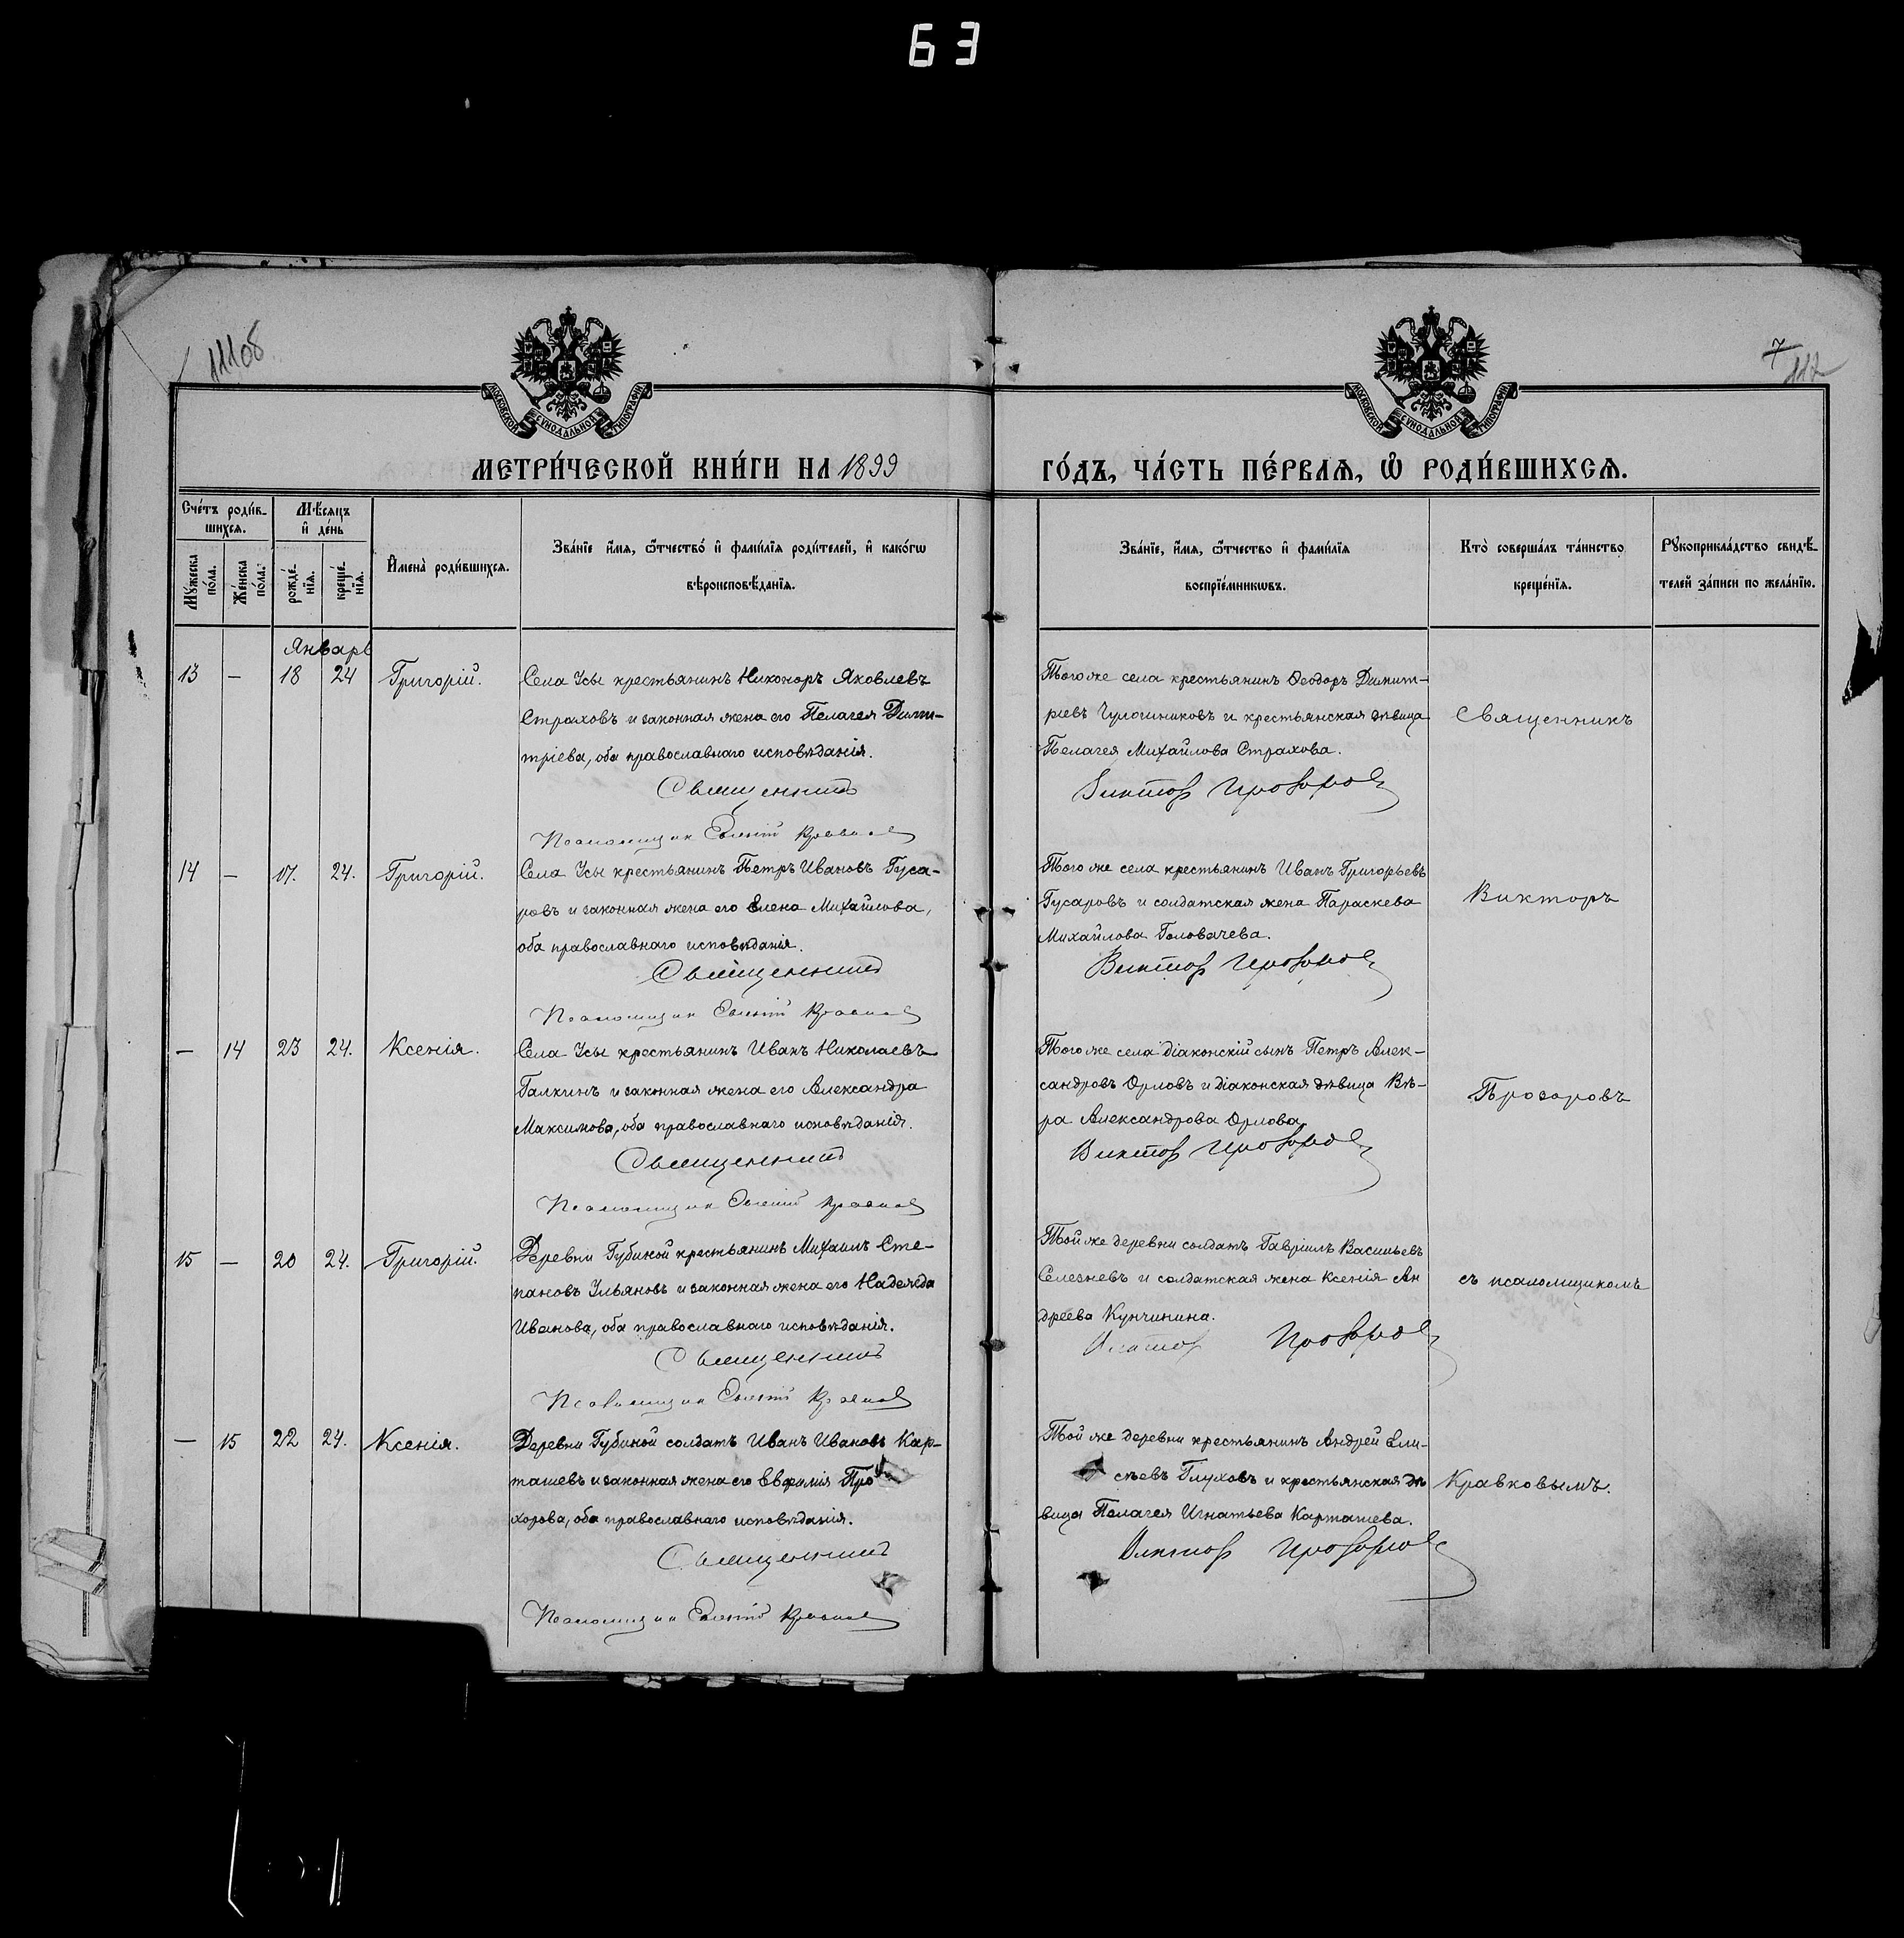 63
11108
7
112
МОСКОВСКОЙ СУНОДАЛЬНОЙ ТИПОГРАФІИ
МОСКОВСКОЙ СУНОДАЛЬНОЙ ТИПОГРАФІИ
МЕТРИ́ЧЕСКОЙ КНИ́ГИ НА 1899
ГО́ДЪ, ЧА́СТЬ ПЕ́РВАѦ, Ѽ РОДИ́ВШИХСѦ.
Сче́тъ роди́в-
шихсѧ.
Мѣ́сѧцъ
и҆ де́нь
Мꙋ́жеска по́ла.
Же́нска по́ла.
рожде́-нїѧ.
креще́-нїѧ.
И҆мена̀ роди́вшихсѧ.
Зва́нїе и҆́мѧ, ѻ҆́тчество́ и҆ фами́лїѧ роди́телей, и҆ како́гѡ
вѣроисповѣ́данїѧ.
Зва́нїе, и҆́мѧ, ѻ҆́тчество и҆ фами́лїѧ
воспрїе́мникѡвъ.
Кто̀ соверша́лъ та́инство
креще́нїѧ.
Рꙋкоприкла́дство свидѣ́-
телей за́писи по жела́нїю.
Январь
13 — 18 24 Григорій.
Села Усы крестьянинъ Никоноръ Яковлевъ
Страховъ и законная жена его Пелагея Дими-
тріева, оба православнаго исповѣданія.
Священникъ
Псаломщик Евгеній Кравков
Того же села крестьянинъ Ѳеодоръ Димит-
ріевъ и крестьянская дѣвица
Пелагея Михайлова Страхова.
Виктор Прозоров
Священникъ
14 — 17. 24. Григорій.
Села Усы крестьянинъ Петръ Ивановъ Гуса-
ровъ и законная жена его Елена Михайлова,
оба православнаго исповѣданія.
Священникъ
Псаломщик Евгеній Кравков
Того же села крестьянинъ Иванъ Григорьевъ
Гусаровъ и солдатская жена Параскева
Михайлова Головачева.
Виктор Прозоров
Викторъ
— 14 23 24. Ксенія.
Села Усы крестьянинъ Иванъ Николаевъ
Галкинъ и законная жена его Александра
Максимова, оба православнаго исповѣданія.
Священникъ
Псаломщик Евгеній Кравков
Того же села діаконскій сынъ Петръ Алек-
сандровъ Орловъ и діаконская дѣвица Вѣ-
ра Александрова Орлова.
Виктор Прозоров
Прозоровъ
15 — 20 24. Григорій.
Деревни Губиной крестьянинъ Михаилъ Сте-
пановъ Ульяновъ и законная жена его Надежда
Иванова, оба православнаго исповѣданія.
Священникъ
Псаломщик Евгеній Кравков
Той же деревни солдатъ Гавріилъ Васильевъ
Селезневъ и солдатская жена Ксенія Ан
дреева Кунчинина.
Виктор Прозоров
съ псаломщикомъ
— 15 22 24. Ксенія.
Деревни Губиной солдатъ Иванъ Ивановъ Кар-
ташевъ и законная жена его Евфимія Про
хорова, оба православнаго исповѣданія.
Священникъ
Псаломщик Евгеній Кравков
Той же деревни крестьянинъ Андрей Ели-
сѣевъ Глуховъ и крестьянская дѣ
вица Пелагея Игнатьева Карташева.
Виктор Прозоров
Кравковымъ.